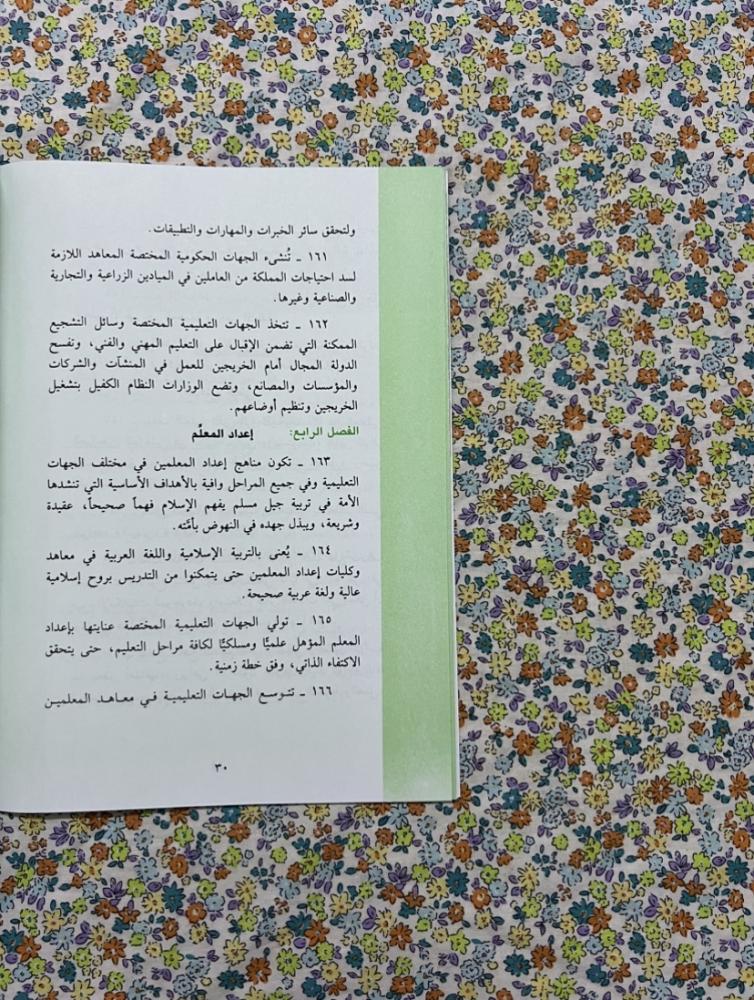 ولتحقق سائر الخبرات والمهارات والتطبيقات.
١٦١ ـ تُنشىء الجهات الحكومية المختصة المعاهد اللازمة
لسد احتياجات المملكة من العاملين في الميادين الزراعية والتجارية
والصناعية وغيرها.
١٦٢ ـ تتخذ الجهات التعليمية المختصة وسائل التشجيع
الممكنة التي تضمن الإقبال على التعليم المهني والفني، وتفسح
الدولة المجال أمام الخريجين للعمل في المنشآت والشركات
والمؤسسات والمصانع، وتضع الوزارات النظام الكفيل بتشغيل
الخريجين وتنظيم أوضاعهم.
الفصل الرابع: إعداد المعلّم
١٦٣ ـ تكون مناهج إعداد المعلمين في مختلف الجهات
التعليمية وفي جميع المراحل وافية بالأهداف الأساسية التي تنشدها
الأمة في تربية جيل مسلم يفهم الإسلام فهماً صحيحاً، عقيدة
وشريعة، ويبذل جهده في النهوض بأمّته.
١٦٤ ـ يُعنى بالتربية الإسلامية واللغة العربية في معاهد
وكليات إعداد المعلمين حتى يتمكنوا من التدريس بروح إسلامية
عالية ولغة عربية صحيحة.
١٦٥ ـ تولي الجهات التعليمية المختصة عنايتها بإعداد
المعلم المؤهل علميًّا ومسلكيًّا لكافة مراحل التعليم، حتى يتحقق
الاكتفاء الذاتي، وفق خطة زمنية.
١٦٦ ـ تتوسع الجهات التعليمية في معاهد المعلمين
٣٠